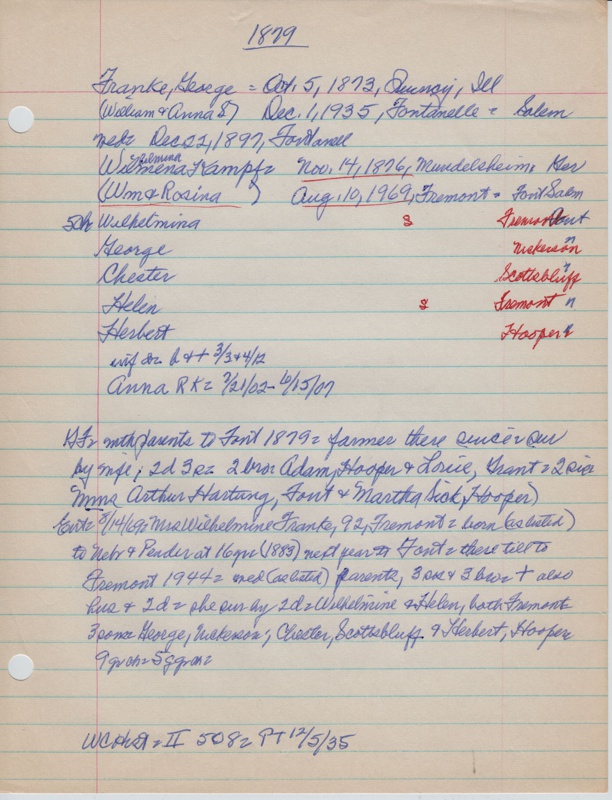 1879
Franke, George = Oct. 5, 1873, Quincy, Ill
(William & Anna S) Dec. 1, 1935, Fontanelle = Salem
med= Dec 22, 1897, Fontanell
helmina
Wilmena Kampf= Nov. 14, 1876, Mundelsheim, Ger
(Wm & Rosina ) Aug. 10, 1969, Fremont = Font Salem
5ch Wilhelmina s Fremont Font
George Nickerson "
Chester Scottsbluff "
Helen s Fremont "
Herbert Hooper "
inf = b & + 3/3 & 4/12
Anna R K = 3/21/02 - 6/15/07
Fr with parents to Font 1879 = farmer there since = sur
by wife; 2d 3s = 2 bro = Adam, Hooper & Louie, Grant = 2 sis =
Mms Arthur Hartung, Font & Martha Sick, Hooper)
8/14/69 Mrs Wilhelmine Franke, 92, Fremont = born (as listed)
to Nebr & Pender at 16 yr (1883) next year to Font = there till to
Fremont 1944 = med (as listed) parents, 3 sis & 3 bro = + also
hus & 2d = she sur by 2d = Wilhelmine & Helen, both Fremont
3 sons = George, Nickerson; Chester, Scottsbluff & Herbert, Hooper
9 grch = 5 ggrch =
II 508 = PT 12/5/35